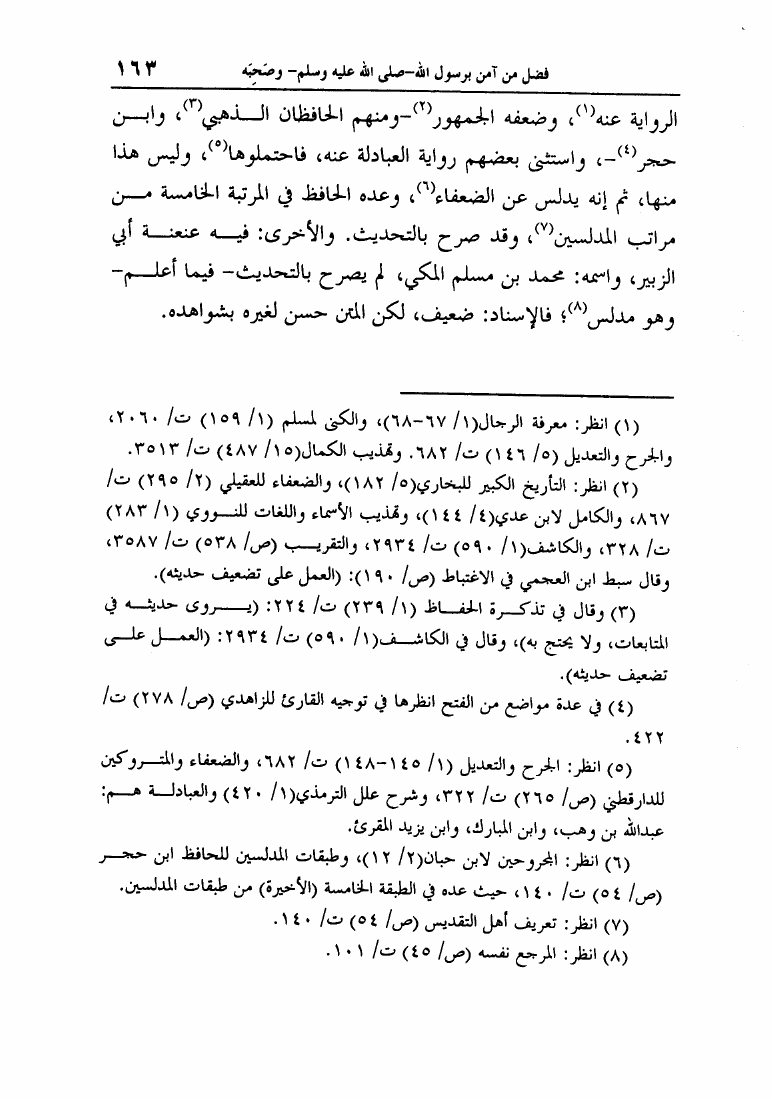 فضل من آمن برسول الله-صلى الله عليه وسلم- وصَحِبَه ١٦٣
الرواية عنه(١)، وضعفه الجمهور(٢)-ومنهم الحافظان الـــذهبي(٣)، وابـــن
حجر(٤)-، واستثنى بعضهم رواية العبادلة عنه، فاحتملوها(٥)، وليس هذا
منها، ثم إنه يدلس عن الضعفاء(٦)، وعده الحافظ في المرتبة الخامسة مـــن
مراتب المدلسين(٧)، وقد صرح بالتحديث. والأخرى: فيـــه عنعنـــة أبي
الزبير، واسمه: محمد بن مسلم المكي، لم يصرح بالتحديث- فيما أعلـــم-
وهو مدلس(٨)؛ فالإسناد: ضعيف، لكن المتن حسن لغيره بشواهده.
(١) انظر: معرفة الرجال(١/ ٦٧-٦٨)، والكنى لمسلم (١/ ١٥٩) ت/ ٢٠٦٠،
والجرح والتعديل (٥/ ١٤٦) ت/ ٦٨٢. وتهذيب الكمال(١٥/ ٤٨٧) ت/ ٣٥١٣.
(٢) انظر: التأريخ الكبير للبخاري(٥/ ١٨٢)، والضعفاء للعقيلي (٢/ ٢٩٥) ت/
٨٦٧، والكامل لابن عدي(٤/ ١٤٤)، وتهذيب الأسماء واللغات للنـــووي (١/ ٢٨٣)
ت/ ٣٢٨، والكاشف(١/ ٥٩٠) ت/ ٢٩٣٤، والتقريـــب (ص/ ٥٣٨) ت/ ٣٥٨٧،
وقال سبط ابن العجمي في الاغتباط (ص/ ١٩٠): (العمل على تضعيف حديثه).
(٣) وقال في تذكـــرة الحفـــاظ (١/ ٢٣٩) ت/ ٢٢٤: (يـــروى حديثـــه في
المتابعات، ولا يحتج به)، وقال في الكاشـــف(١/ ٥٩٠) ت/ ٢٩٣٤: (العمـــل علـــى
تضعيف حديثه).
(٤) في عدة مواضع من الفتح انظرها في توجيه القارئ للزاهدي (ص/ ٢٧٨) ت/
٤٢٢.
(٥) انظر: الجرح والتعديل (١/ ١٤٥-١٤٨) ت/ ٦٨٢، والضعفاء والمتـــروكين
للدارقطني (ص/ ٢٦٥) ت/ ٣٢٢، وشرح علل الترمذي(١/ ٤٢٠) والعبادلـــة هـــم:
عبدالله بن وهب، وابن المبارك، وابن يزيد المقرئ.
(٦) انظر: المجروحين لابن حبان(٢/ ١٢)، وطبقات المدلسين للحافظ ابن حجـــر
(ص/ ٥٤) ت/ ١٤٠، حيث عده في الطبقة الخامسة (الأخيرة) من طبقات المدلسين.
(٧) انظر: تعريف أهل التقديس (ص/ ٥٤) ت/ ١٤٠.
(٨) انظر: المرجع نفسه (ص/ ٤٥) ت/ ١٠١.